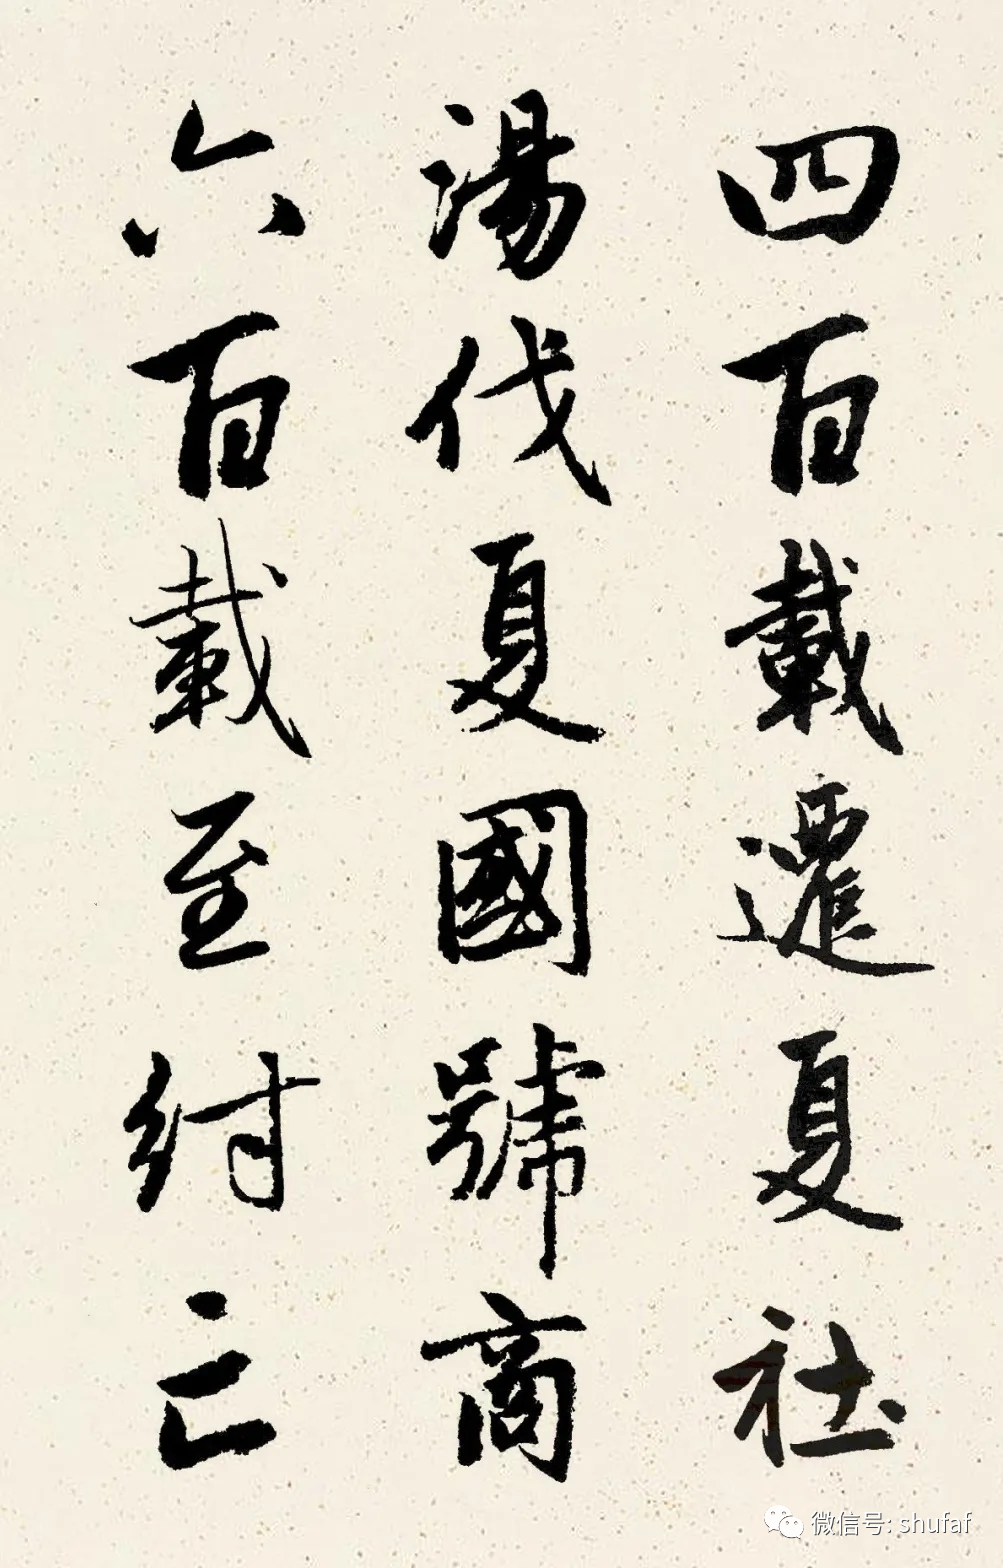 四百載遷夏社
湯伐夏國號商
六百載至紂亡
微信号: shufaf